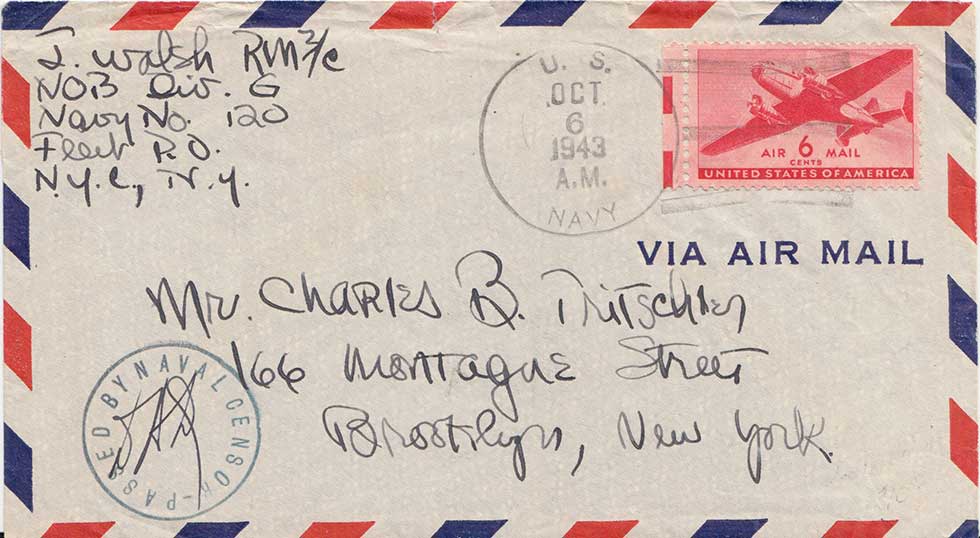 J. Walsh RM2/c
NOB Div. G
Navy No. 120
Fleet P.O.
N.Y.C., N.Y.
U. S.
OCT
6
1943
A.M.
NAVY
AIR 6 MAIL
CENTS
UNITED STATES OF AMERICA
VIA AIR MAIL
Mr. Charles B. Tritschler
166 Montague Street
Brooklyn, New York.
PASSED BY NAVAL CENSOR